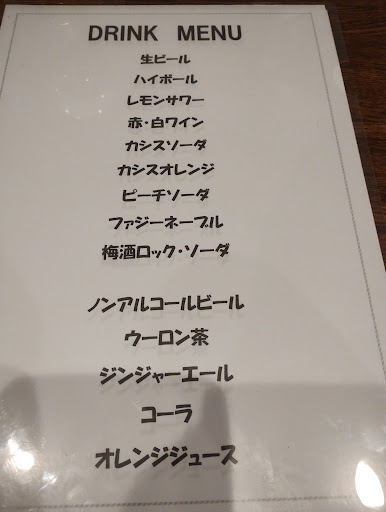 DRINK MENU
生ビール
ハイボール
レモンサワー
赤・白ワイン
カシスソーダ
カシスオレンジ
ピーチソーダ
ファジーネーブル
梅酒ロック・ソーダ
ノンアルコールビール
ウーロン茶
ジンジャーエール
コーラ
オレンジジュース